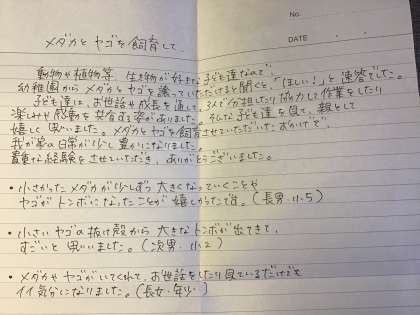 No.
DATE
メダカとヤゴを飼育して
動物や植物等、生き物が好きな子ども達なので、
幼稚園からメダカとヤゴを譲っていただけると聞くと、「ほしい！」と速答でした。
子ども達は、お世話や成長を通して、3人で分担したり協力して作業をしたり
楽しみや感動を共有する姿がありました。そんな子ども達を見て、親として
嬉しく思いました。メダカとヤゴを飼育させていただいたおかげで、
我が家の日常が少し豊かになりました。
貴重な経験をさせていただき、ありがとうございました。
・小さかったメダカが少しずつ大きくなっていくことや
ヤゴがトンボになったことが嬉しかったです。（長男・小5）
・小さいヤゴの抜け殻から大きなトンボが出てきて、
すごいと思いました。（次男・小2）
・メダカやヤゴがいてくれて、お世話をしたり見ているだけでも
イイ気分になりました。（長女・年少）